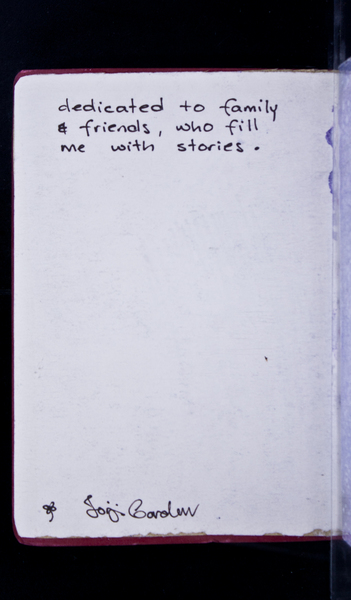 dedicated to family
& friends, who fill
me with stories.